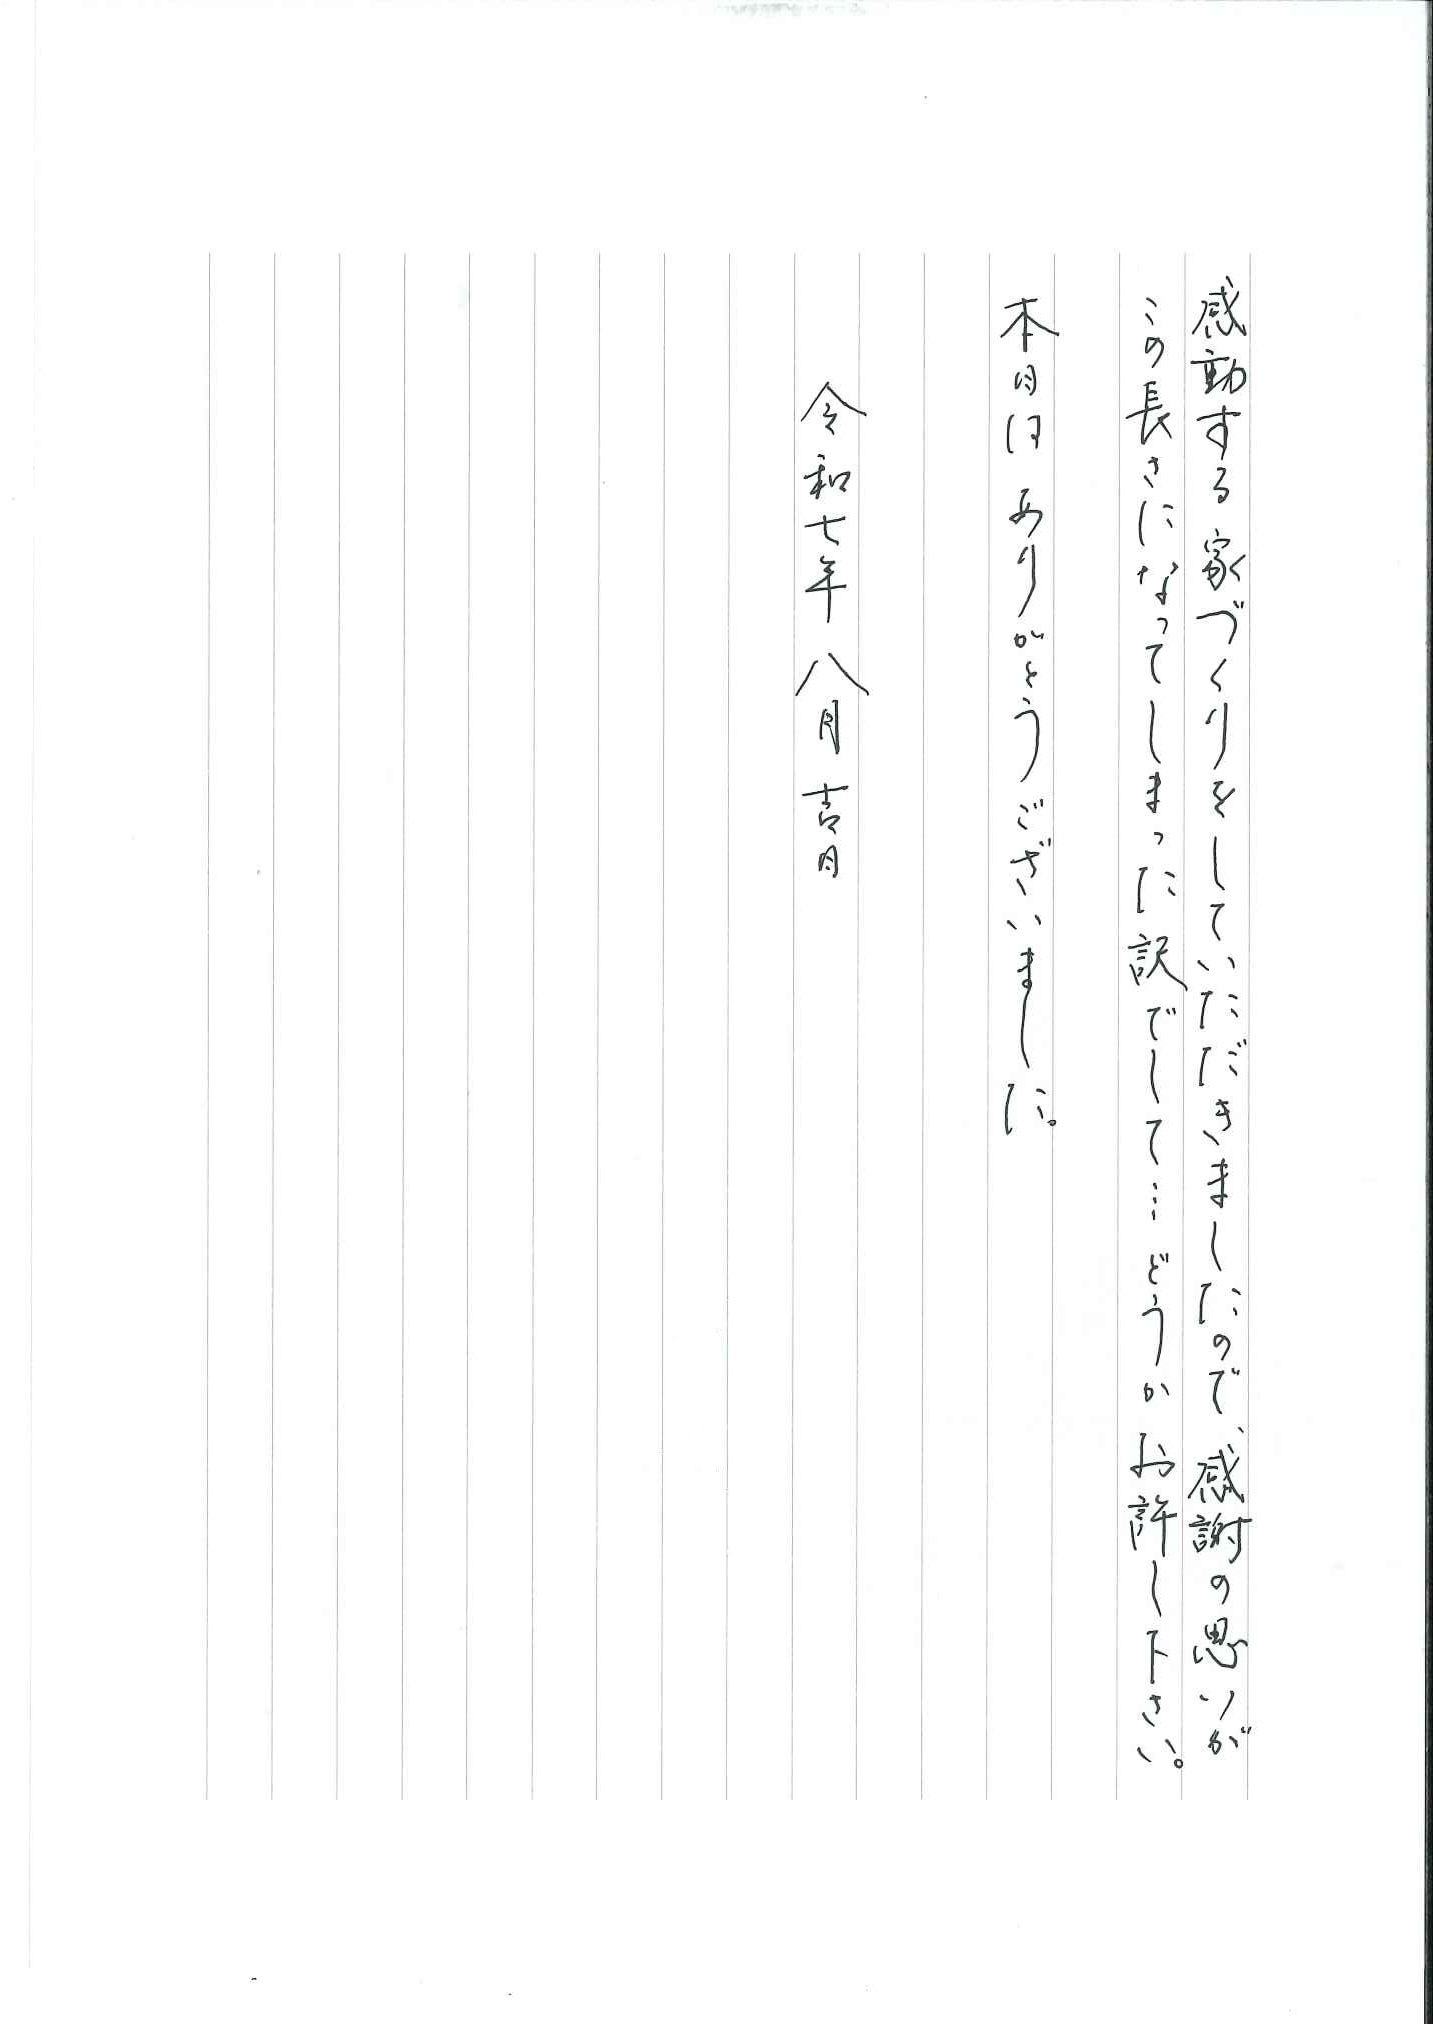 感動する家づくりをしていただきましたので、感謝の思いが
この長さになってしまった訳でして…どうかお許し下さい。
本日はありがとうございました。
令和七年八月吉日